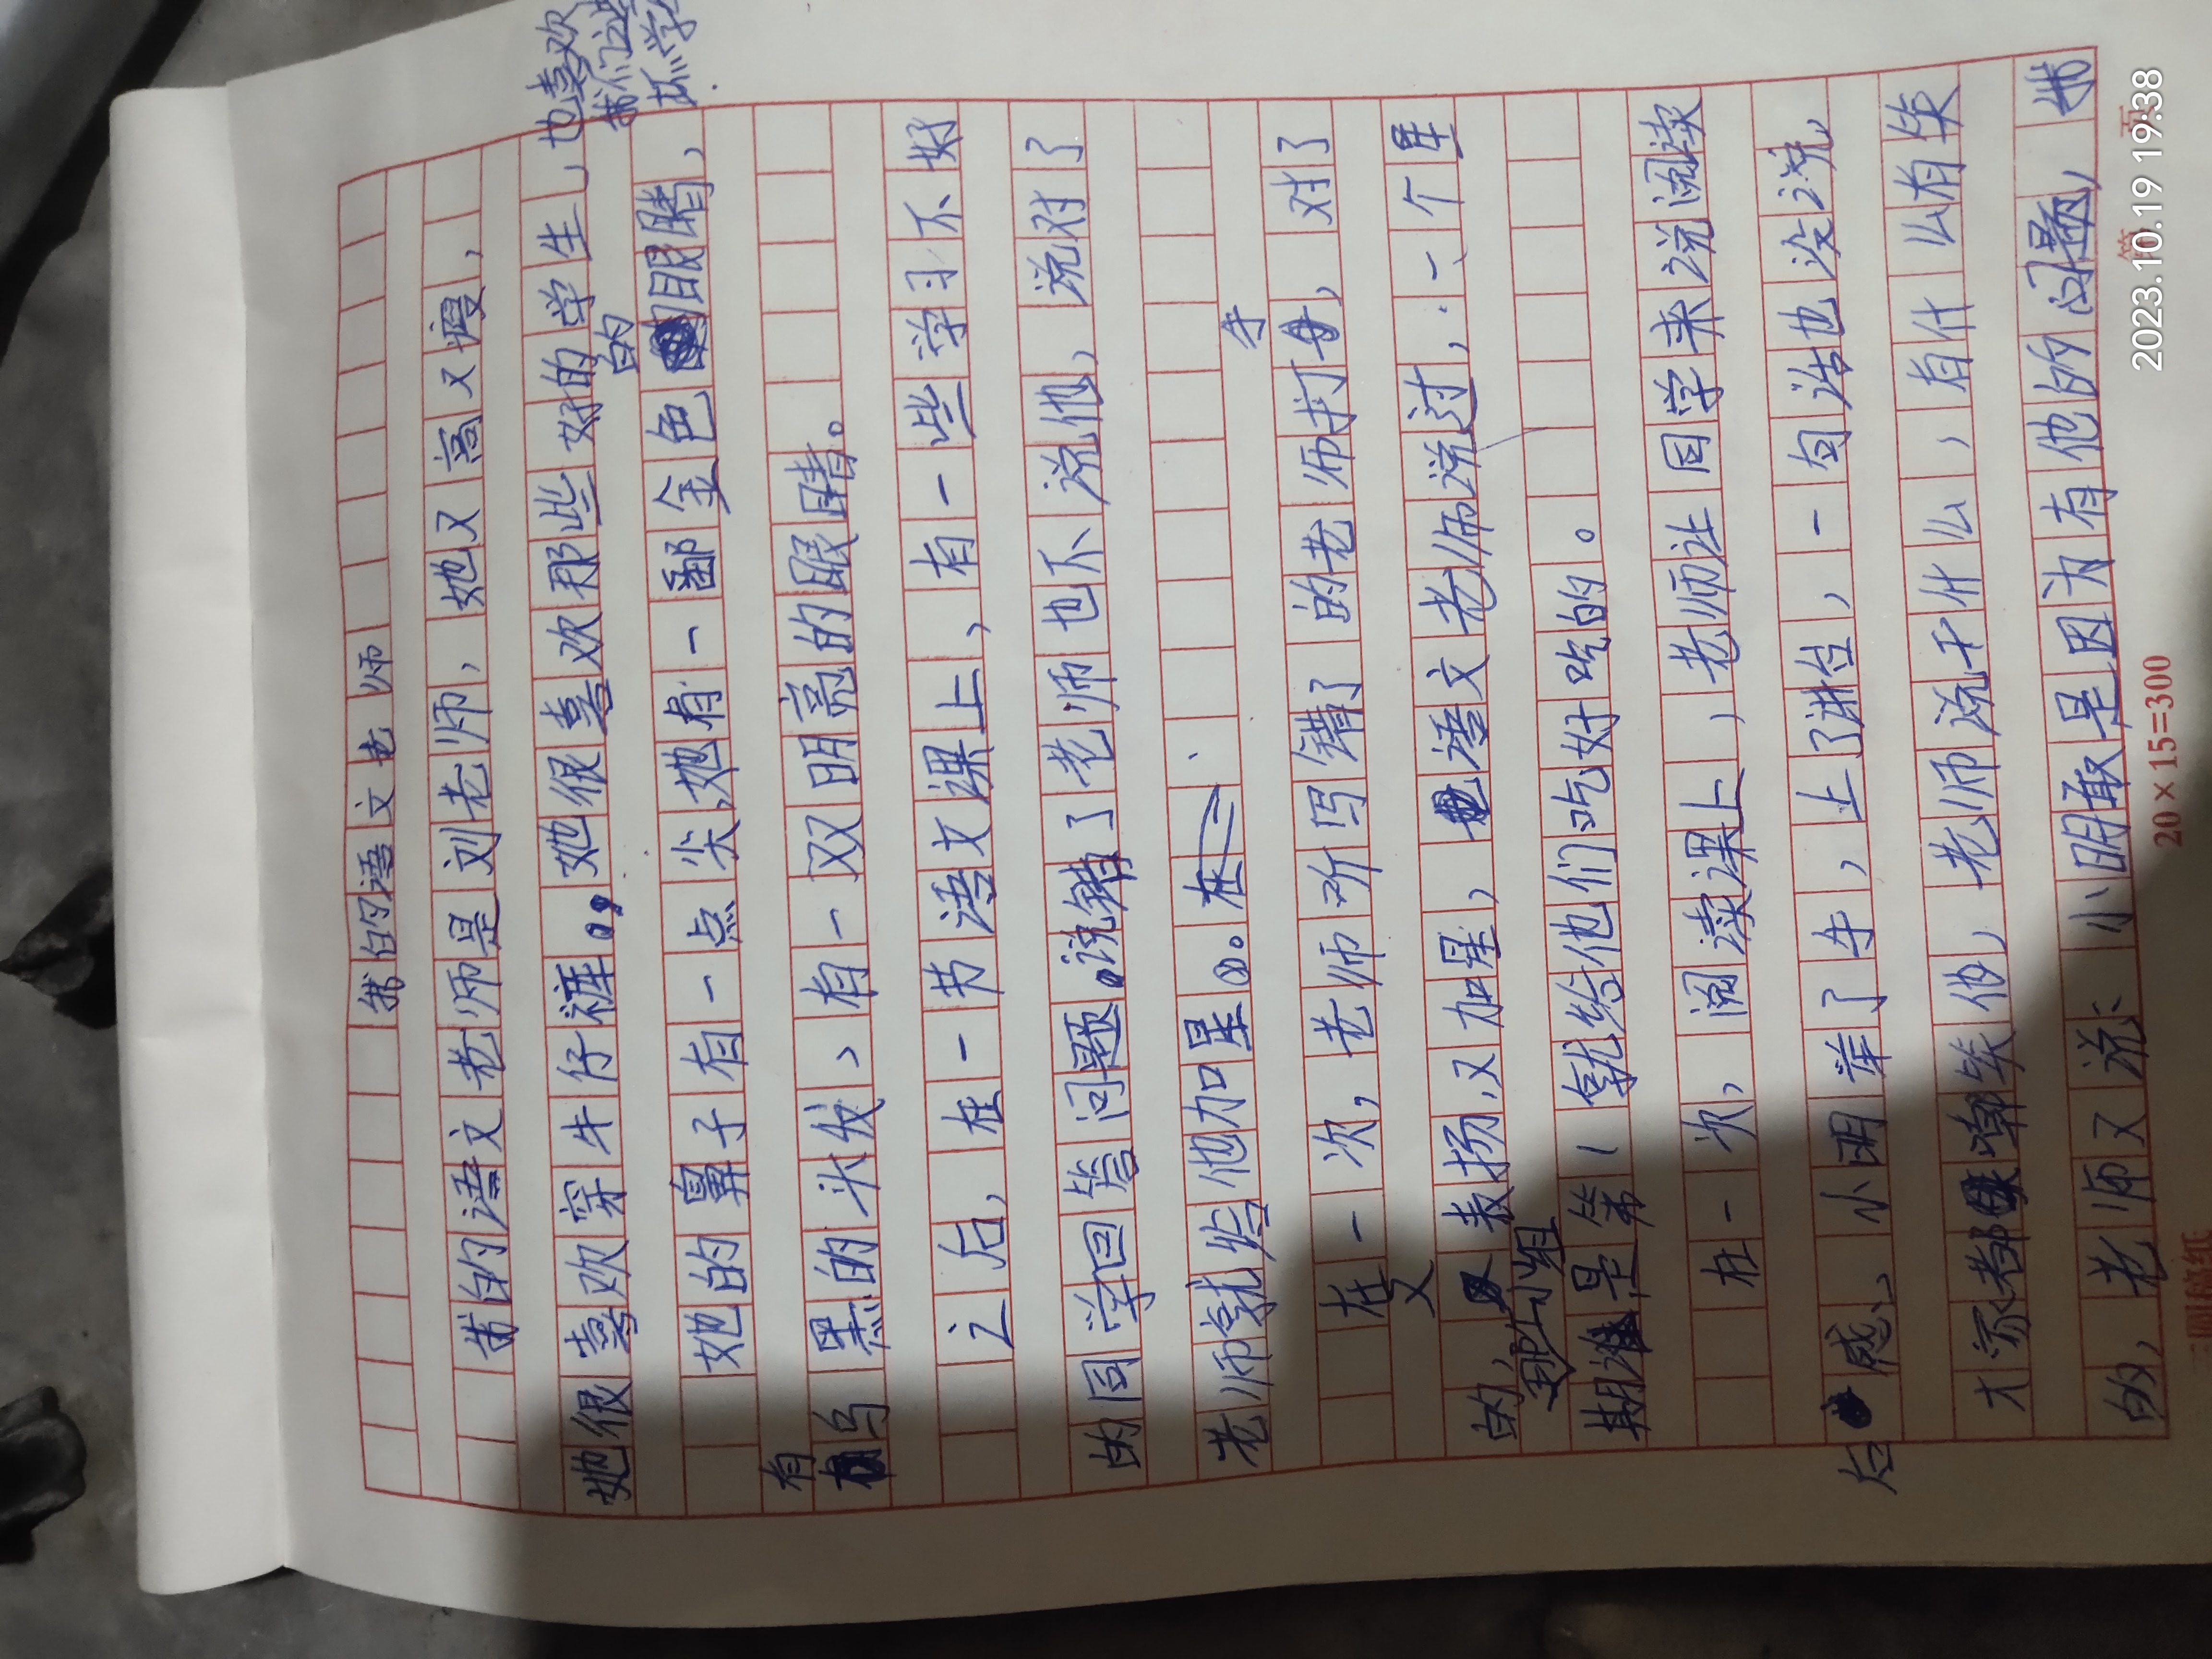 我的语文老师
我的语文老师是刘老师，她又高又瘦，
她很喜欢穿牛仔裤。她很喜欢那些好的学生，也喜欢
我们这些
坏学
她的鼻子有一点尖，她有一鄙金色的眼睛，
有乌黑的头发、有一双明亮的眼睛。
之后，在一节语文课上，有一些学习不好
的同学回答问题。说错了老师也不说他，说对了
老师就给他加星。
在一次，老师听写错了的老师打手，对了
的，又表扬，又加星，语文老师说过，一个星
期谁是第1就给他们吃好吃的。
那个小组
在一次，阅读课上，老师让同学来说阅读
后感、小明举了手，上了讲台，一句话也没说，
大家都嘲笑他，老师说干什么，有什么有笑
的，老师又说、小明敢是因为有他的问题，我
20×15=300
2023.10.19 19:38